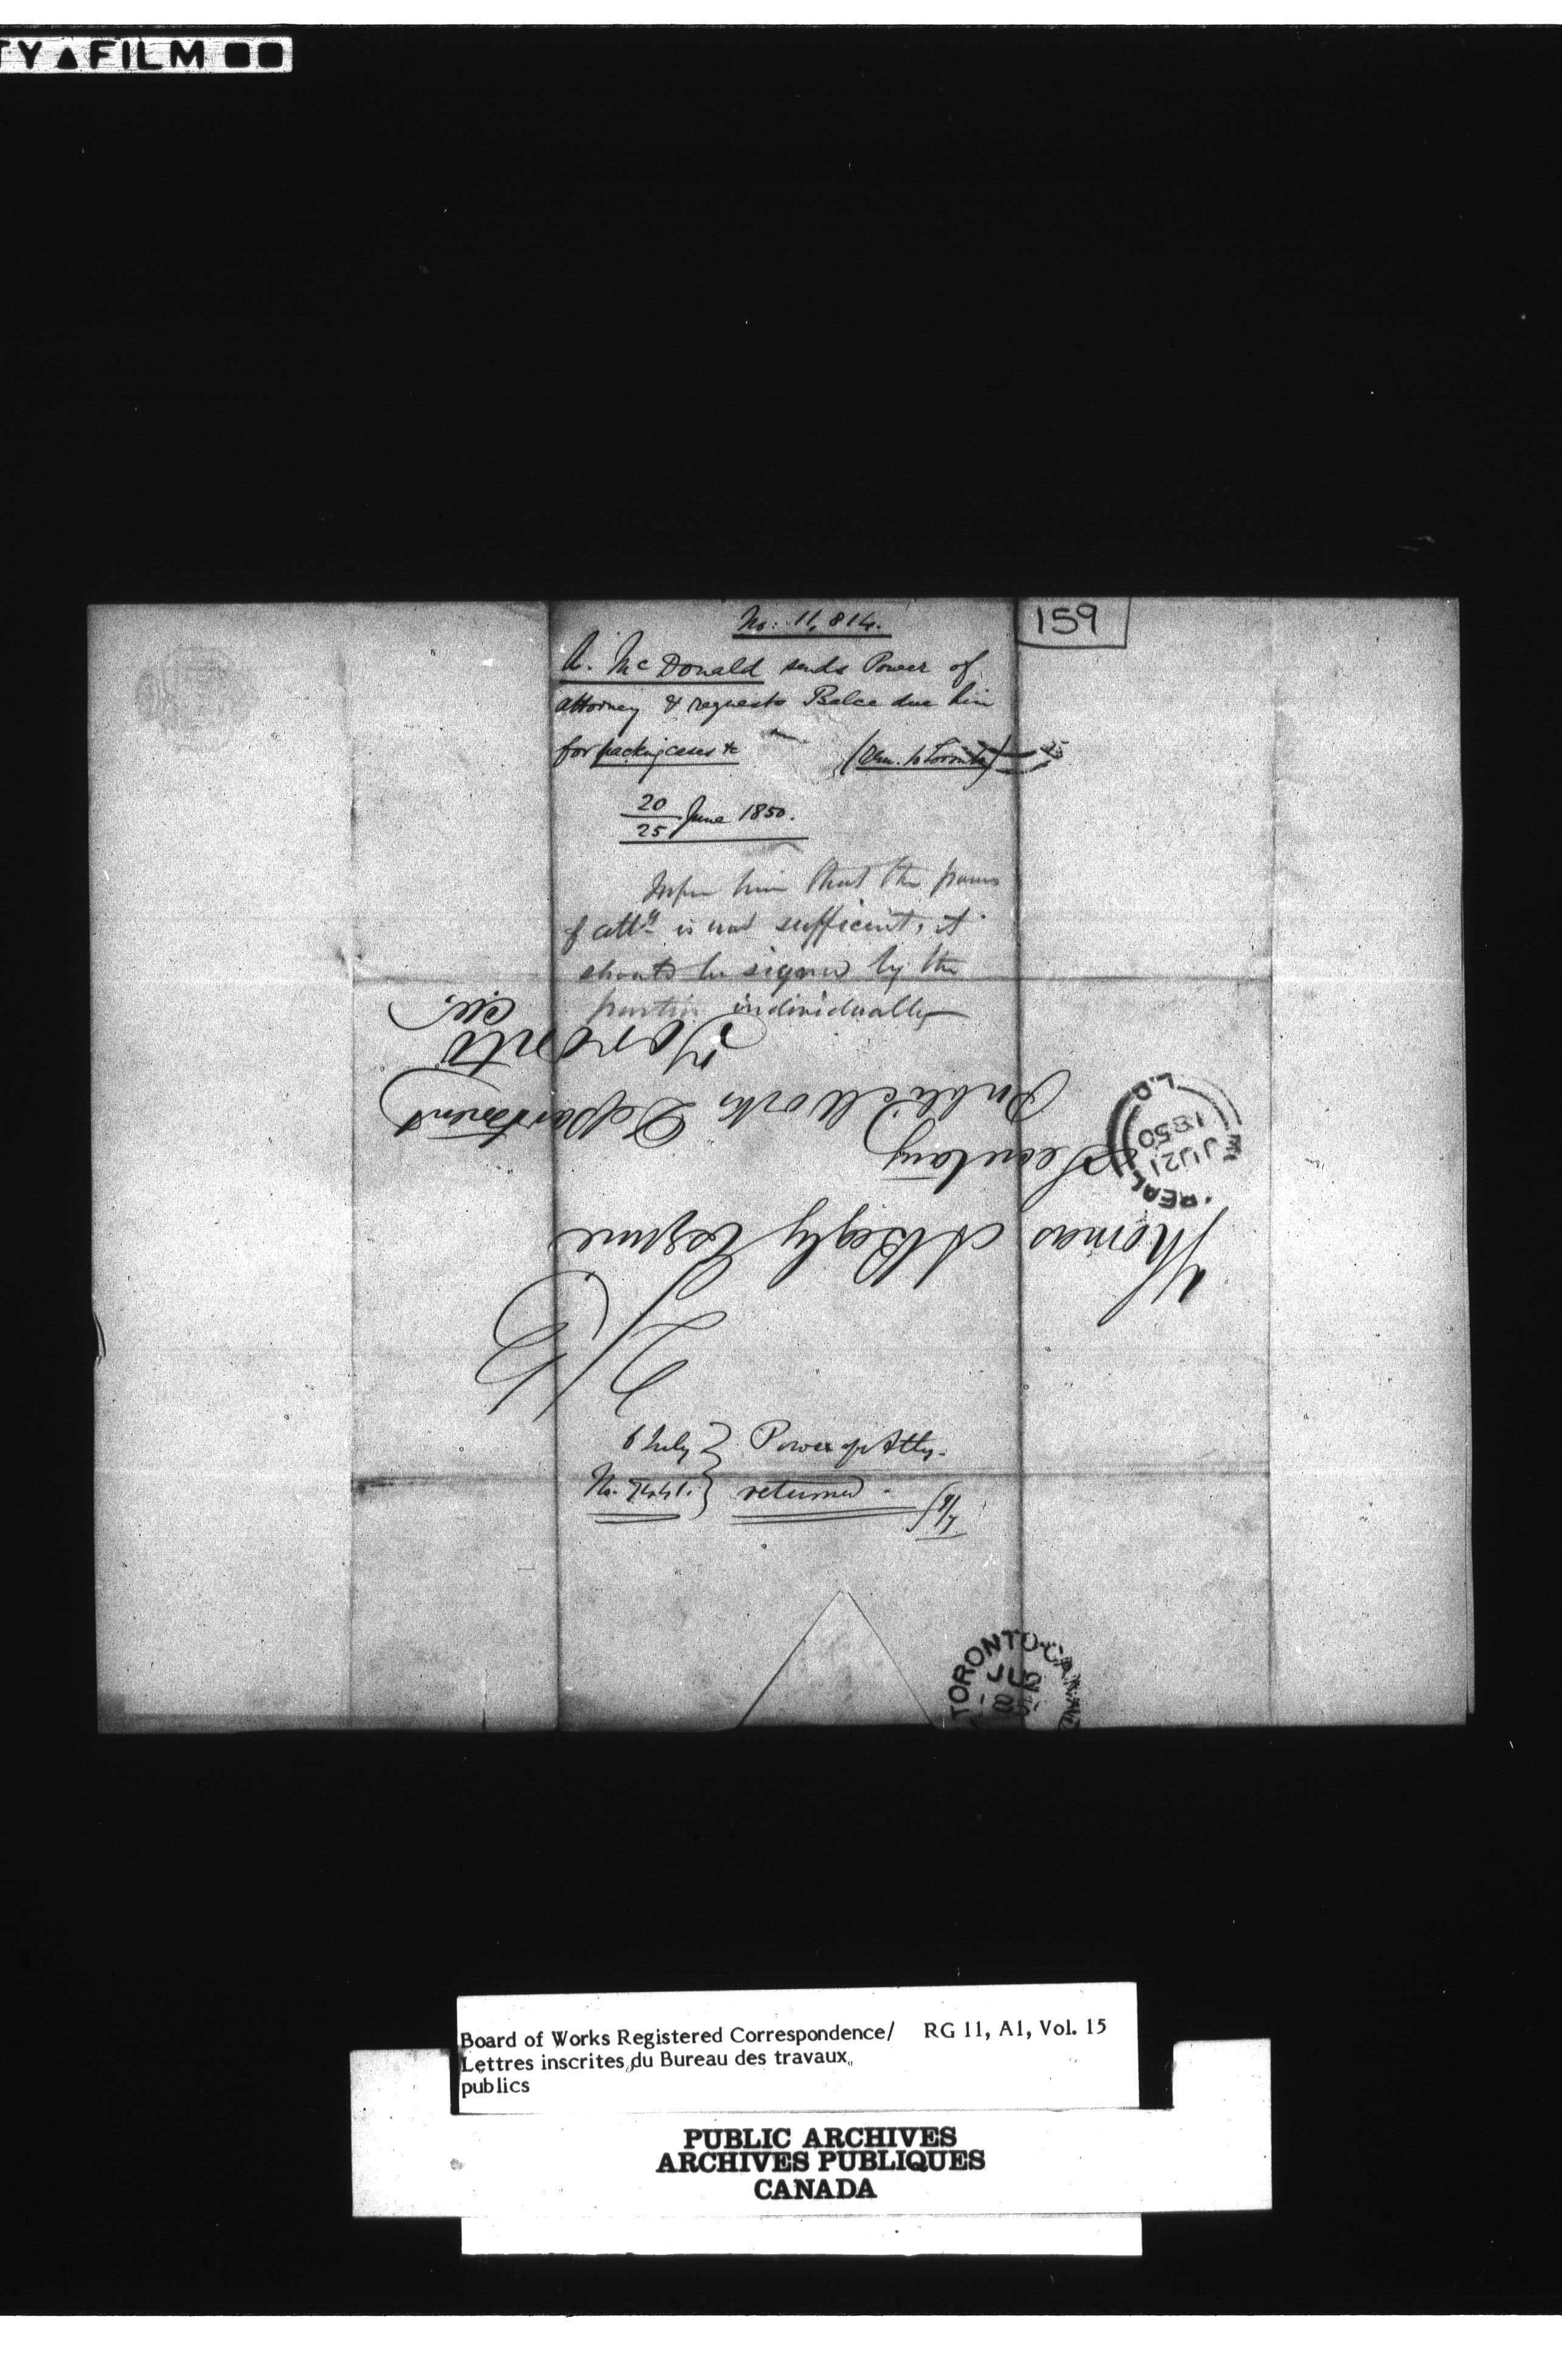 TY▲FILM
No: 11,814.
159
A. McDonald sends Power of
attorney & requests Balce due him
for packing cases &c
(Rem. to Toronto)
20
25 June 1850.
Inform him that the power
of atty is not sufficient, it
should be signed by the
parties individually
Thomas A Begly Esquire
Secretary
Public Works Department
Toronto
C.W.
REAL
JU 21
1850
L.C
6 July } Power of Atty.
No. } returned.
TORONTO-CANAD
JU
Board of Works Registered Correspondence/ RG 11, A1, Vol. 15
Lettres inscrites du Bureau des travaux
publics
PUBLIC ARCHIVES
ARCHIVES PUBLIQUES
CANADA